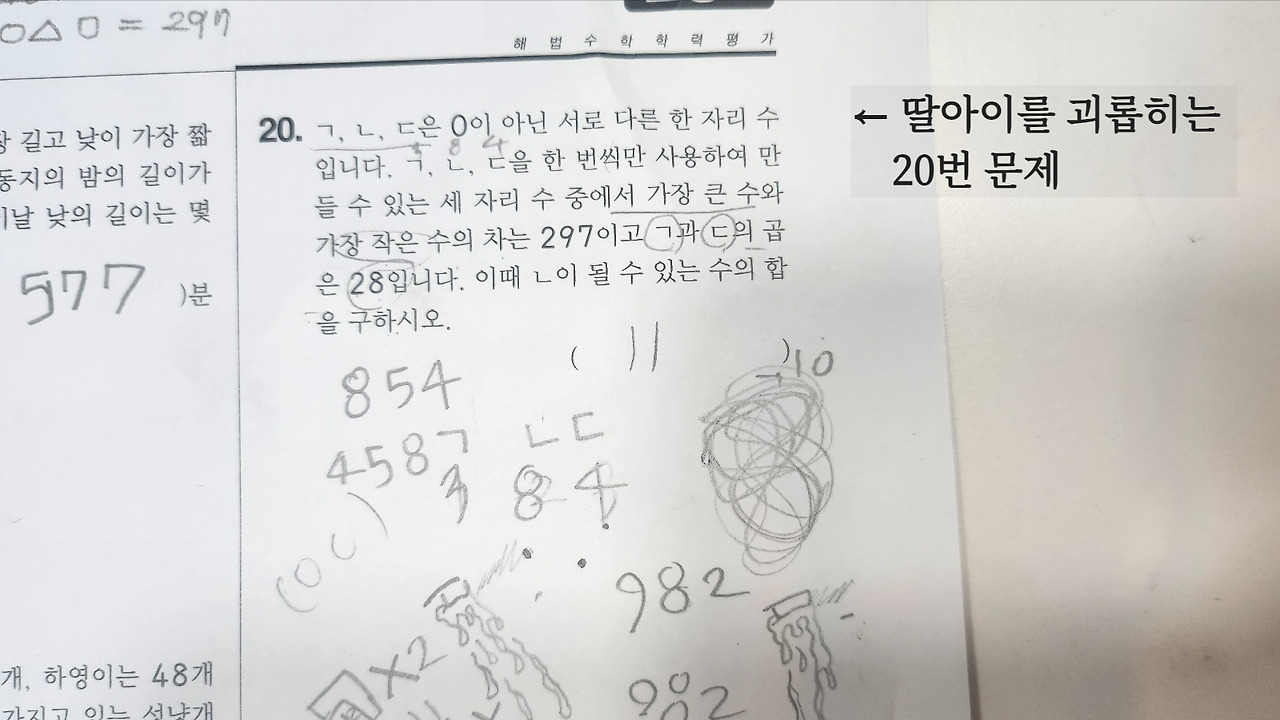 ○△□ = 297
해법수학학력평가
장 길고 낮이 가장 짧
동지의 밤의 길이가
이날 낮의 길이는 몇
577 )분
개, 하영이는 48개
가지고 있는 성냥개
20. ㄱ, ㄴ, ㄷ은 0이 아닌 서로 다른 한 자리 수
8 4
입니다. ㄱ, ㄴ, ㄷ을 한 번씩만 사용하여 만
들 수 있는 세 자리 수 중에서 가장 큰 수와
가장 작은 수의 차는 297이고 ㄱ과 ㄷ의 곱
은 28입니다. 이때 ㄴ이 될 수 있는 수의 합
을 구하시오.
( 11 )
10
854
458
ㄱ ㄴ ㄷ
8 4
982
×2
← 딸아이를 괴롭히는
20번 문제